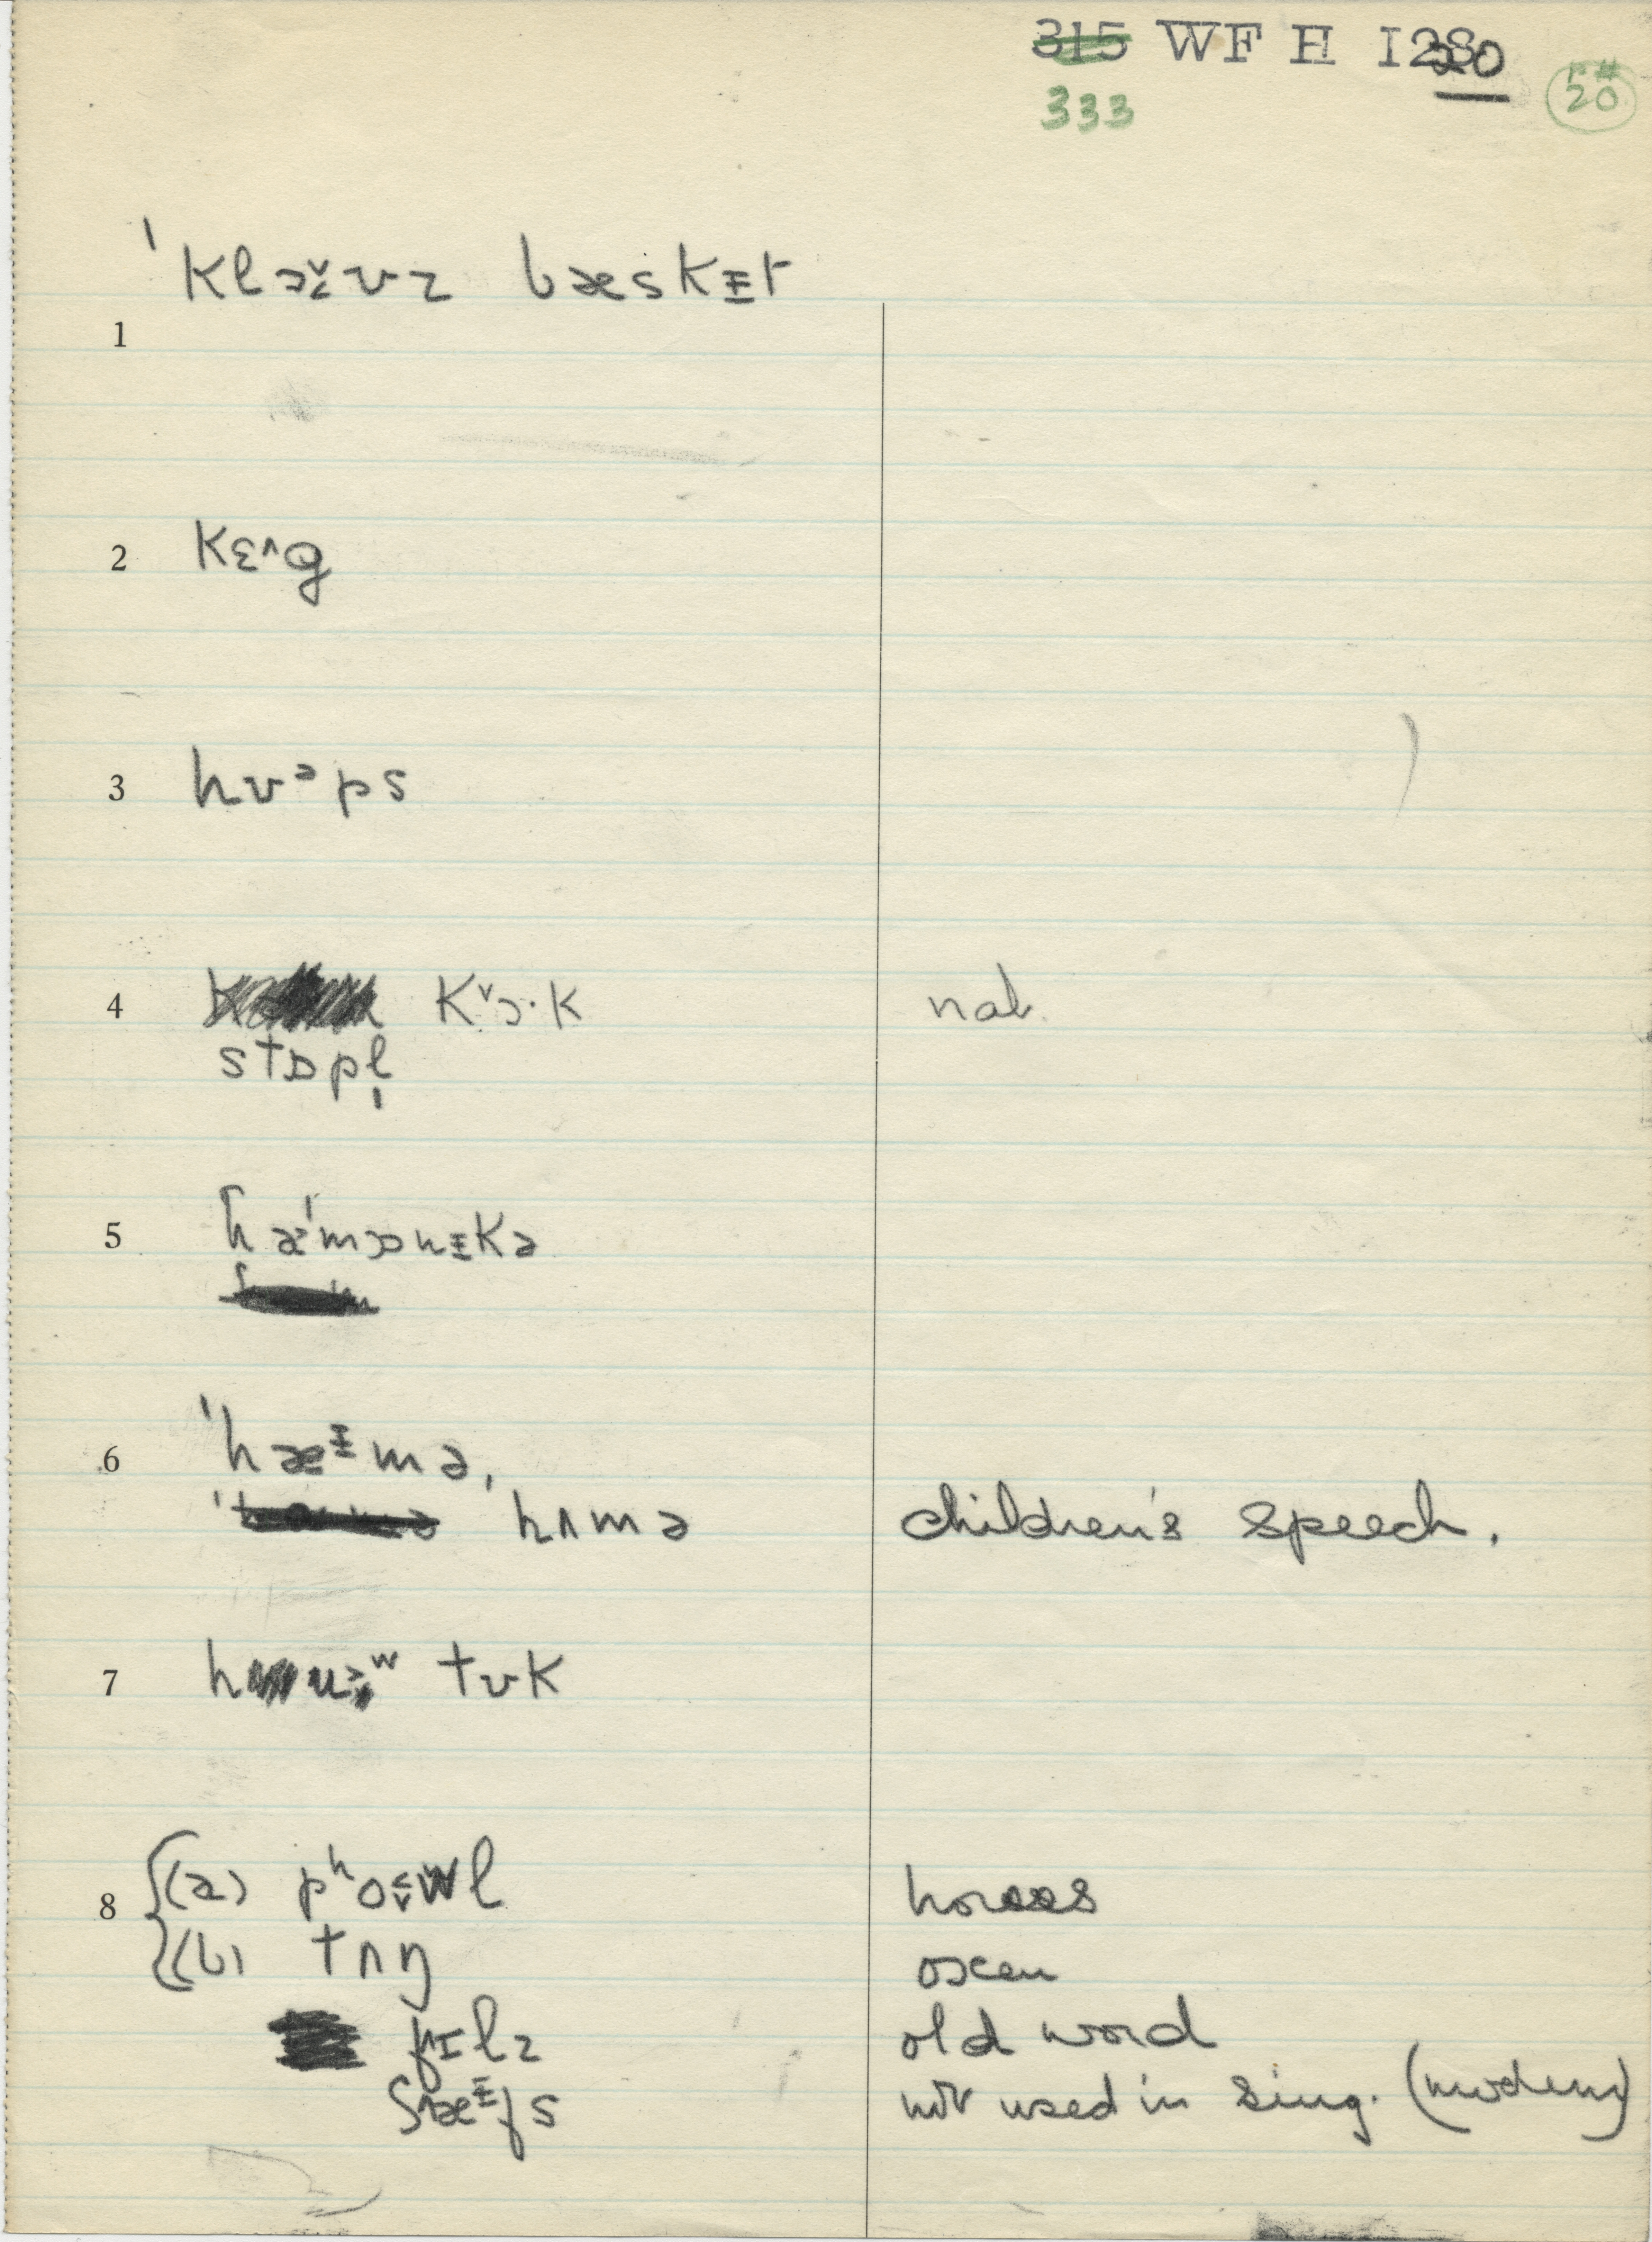 315 WF H I 28 20
333
p# 20
ˈklɔ˯˅ʊz bæskᵻt
1
2 kɛ^g
3 hʊᵊps
4 k˅ɔ·k nat.
stɒpl̩
5 hæˈmɒnᵻkə
6 ˈhæᵻmə,
hʌmə children's speech.
7 tʊk
8 (a) pʰoʷl horses
(b) tʌŋ oxen
fɪlz old word
ʃæᵻfs not used in sing. (modern)